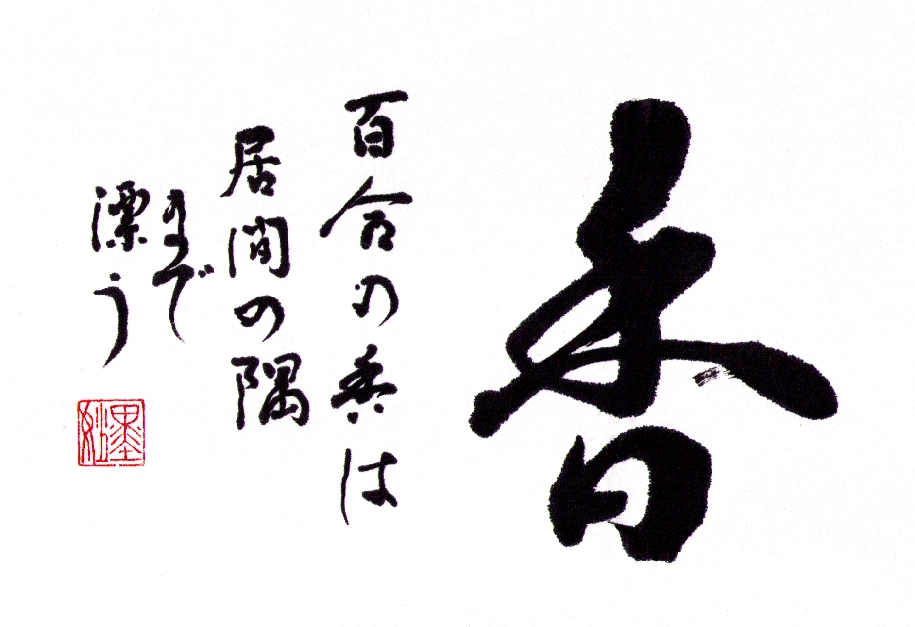 香
百合の香は
居間の隅
まで
漂う
墨妙